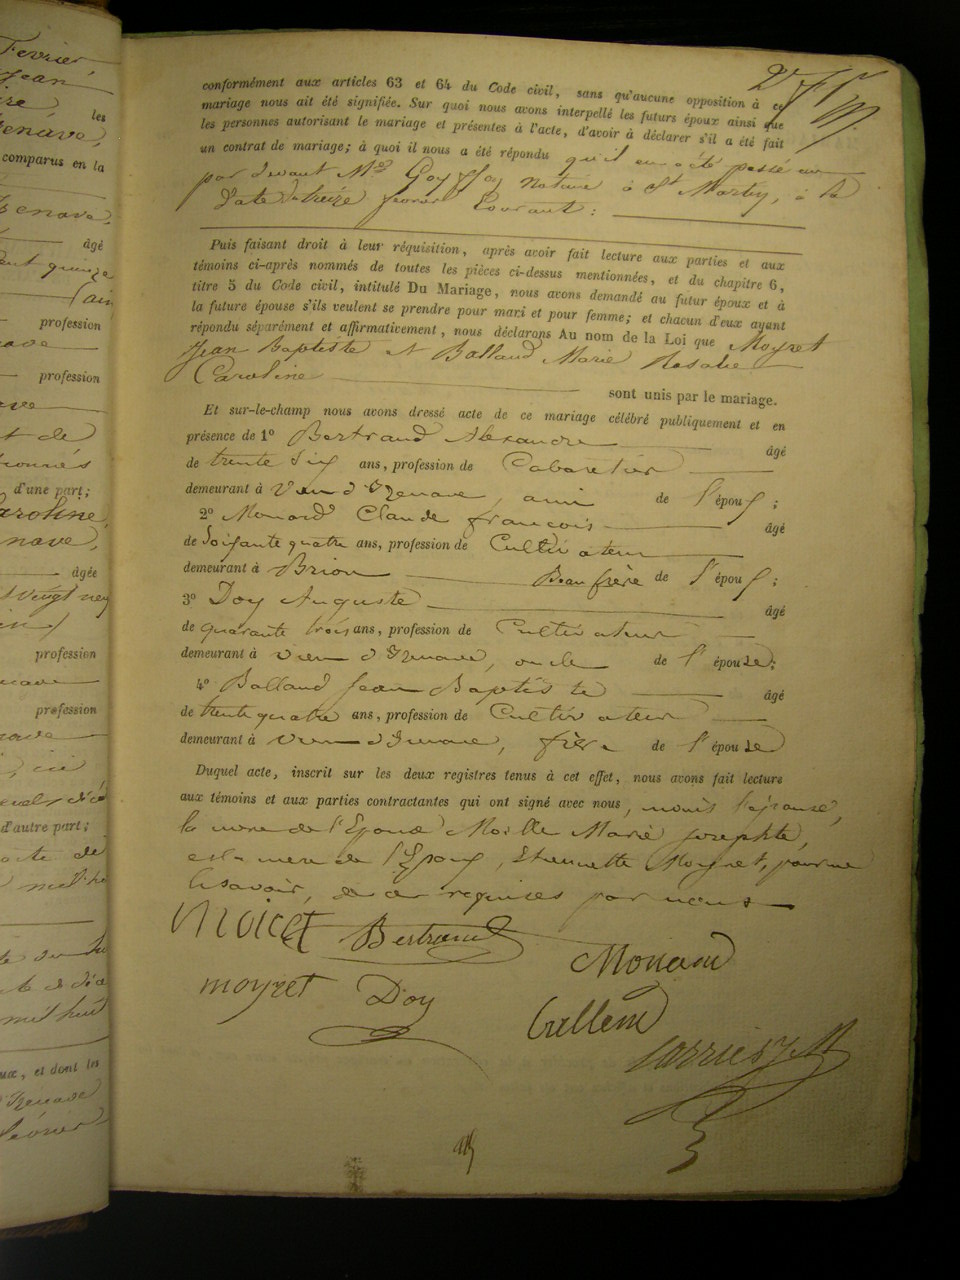 conformément aux articles 63 et 64 du Code civil, sans qu'aucune opposition à ce
mariage nous ait été signifiée. Sur quoi nous avons interpellé les futurs époux ainsi que
les personnes autorisant le mariage et présentes à l'acte, d'avoir à déclarer s'il a été fait
un contrat de mariage; à quoi il nous a été répondu qu'il en a été passé un
par devant Goy notaire à St Martin, à la
date du treize février courant :
Puis faisant droit à leur réquisition, après avoir fait lecture aux parties et aux
témoins ci-après nommés de toutes les pièces ci-dessus mentionnées, et du chapitre 6,
titre 5 du Code civil, intitulé Du Mariage, nous avons demandé au futur époux et à
la future épouse s'ils veulent se prendre pour mari et pour femme; et chacun d'eux ayant
répondu séparément et affirmativement, nous déclarons Au nom de la Loi que Moyret
Jean Baptiste et Balland Marie Rosalie
Caroline sont unis par le mariage.
Et sur-le-champ nous avons dressé acte de ce mariage célébré publiquement et en
présence de 1º Bertrand Alexandre âgé
de trente six ans, profession de Cabaretier
demeurant à Vieu d'Izenave ami de l'époux;
2º Monard Claude françois âgé
de soixante quatre ans, profession de Cultivateur
demeurant à Brion Beau frère de l'époux;
3º Doy Auguste âgé
de quarante trois ans, profession de Cultivateur
demeurant à vieu d'Izenave, oncle de l'épouse;
4º Balland Jean Baptiste âgé
de trente quatre ans, profession de Cultivateur
demeurant à vieu d'Izenave, frère de l'épouse
Duquel acte, inscrit sur les deux registres tenus à cet effet, nous avons fait lecture
aux témoins et aux parties contractantes qui ont signé avec nous, mais l'épouse,
la mère de l'Epouse Marie Josephte,
et la mère de l'Epoux, Etiennette Moyret, pour ne
le savoir, de ce requises par nous
Bertrand
Monard
moyret Doy
Février
Jean
les
Izenave,
comparus en la
Izenave,
âgé
profession
profession
d'une part;
Caroline,
âgée
profession
profession
d'autre part;
et dont les
Izenave
février